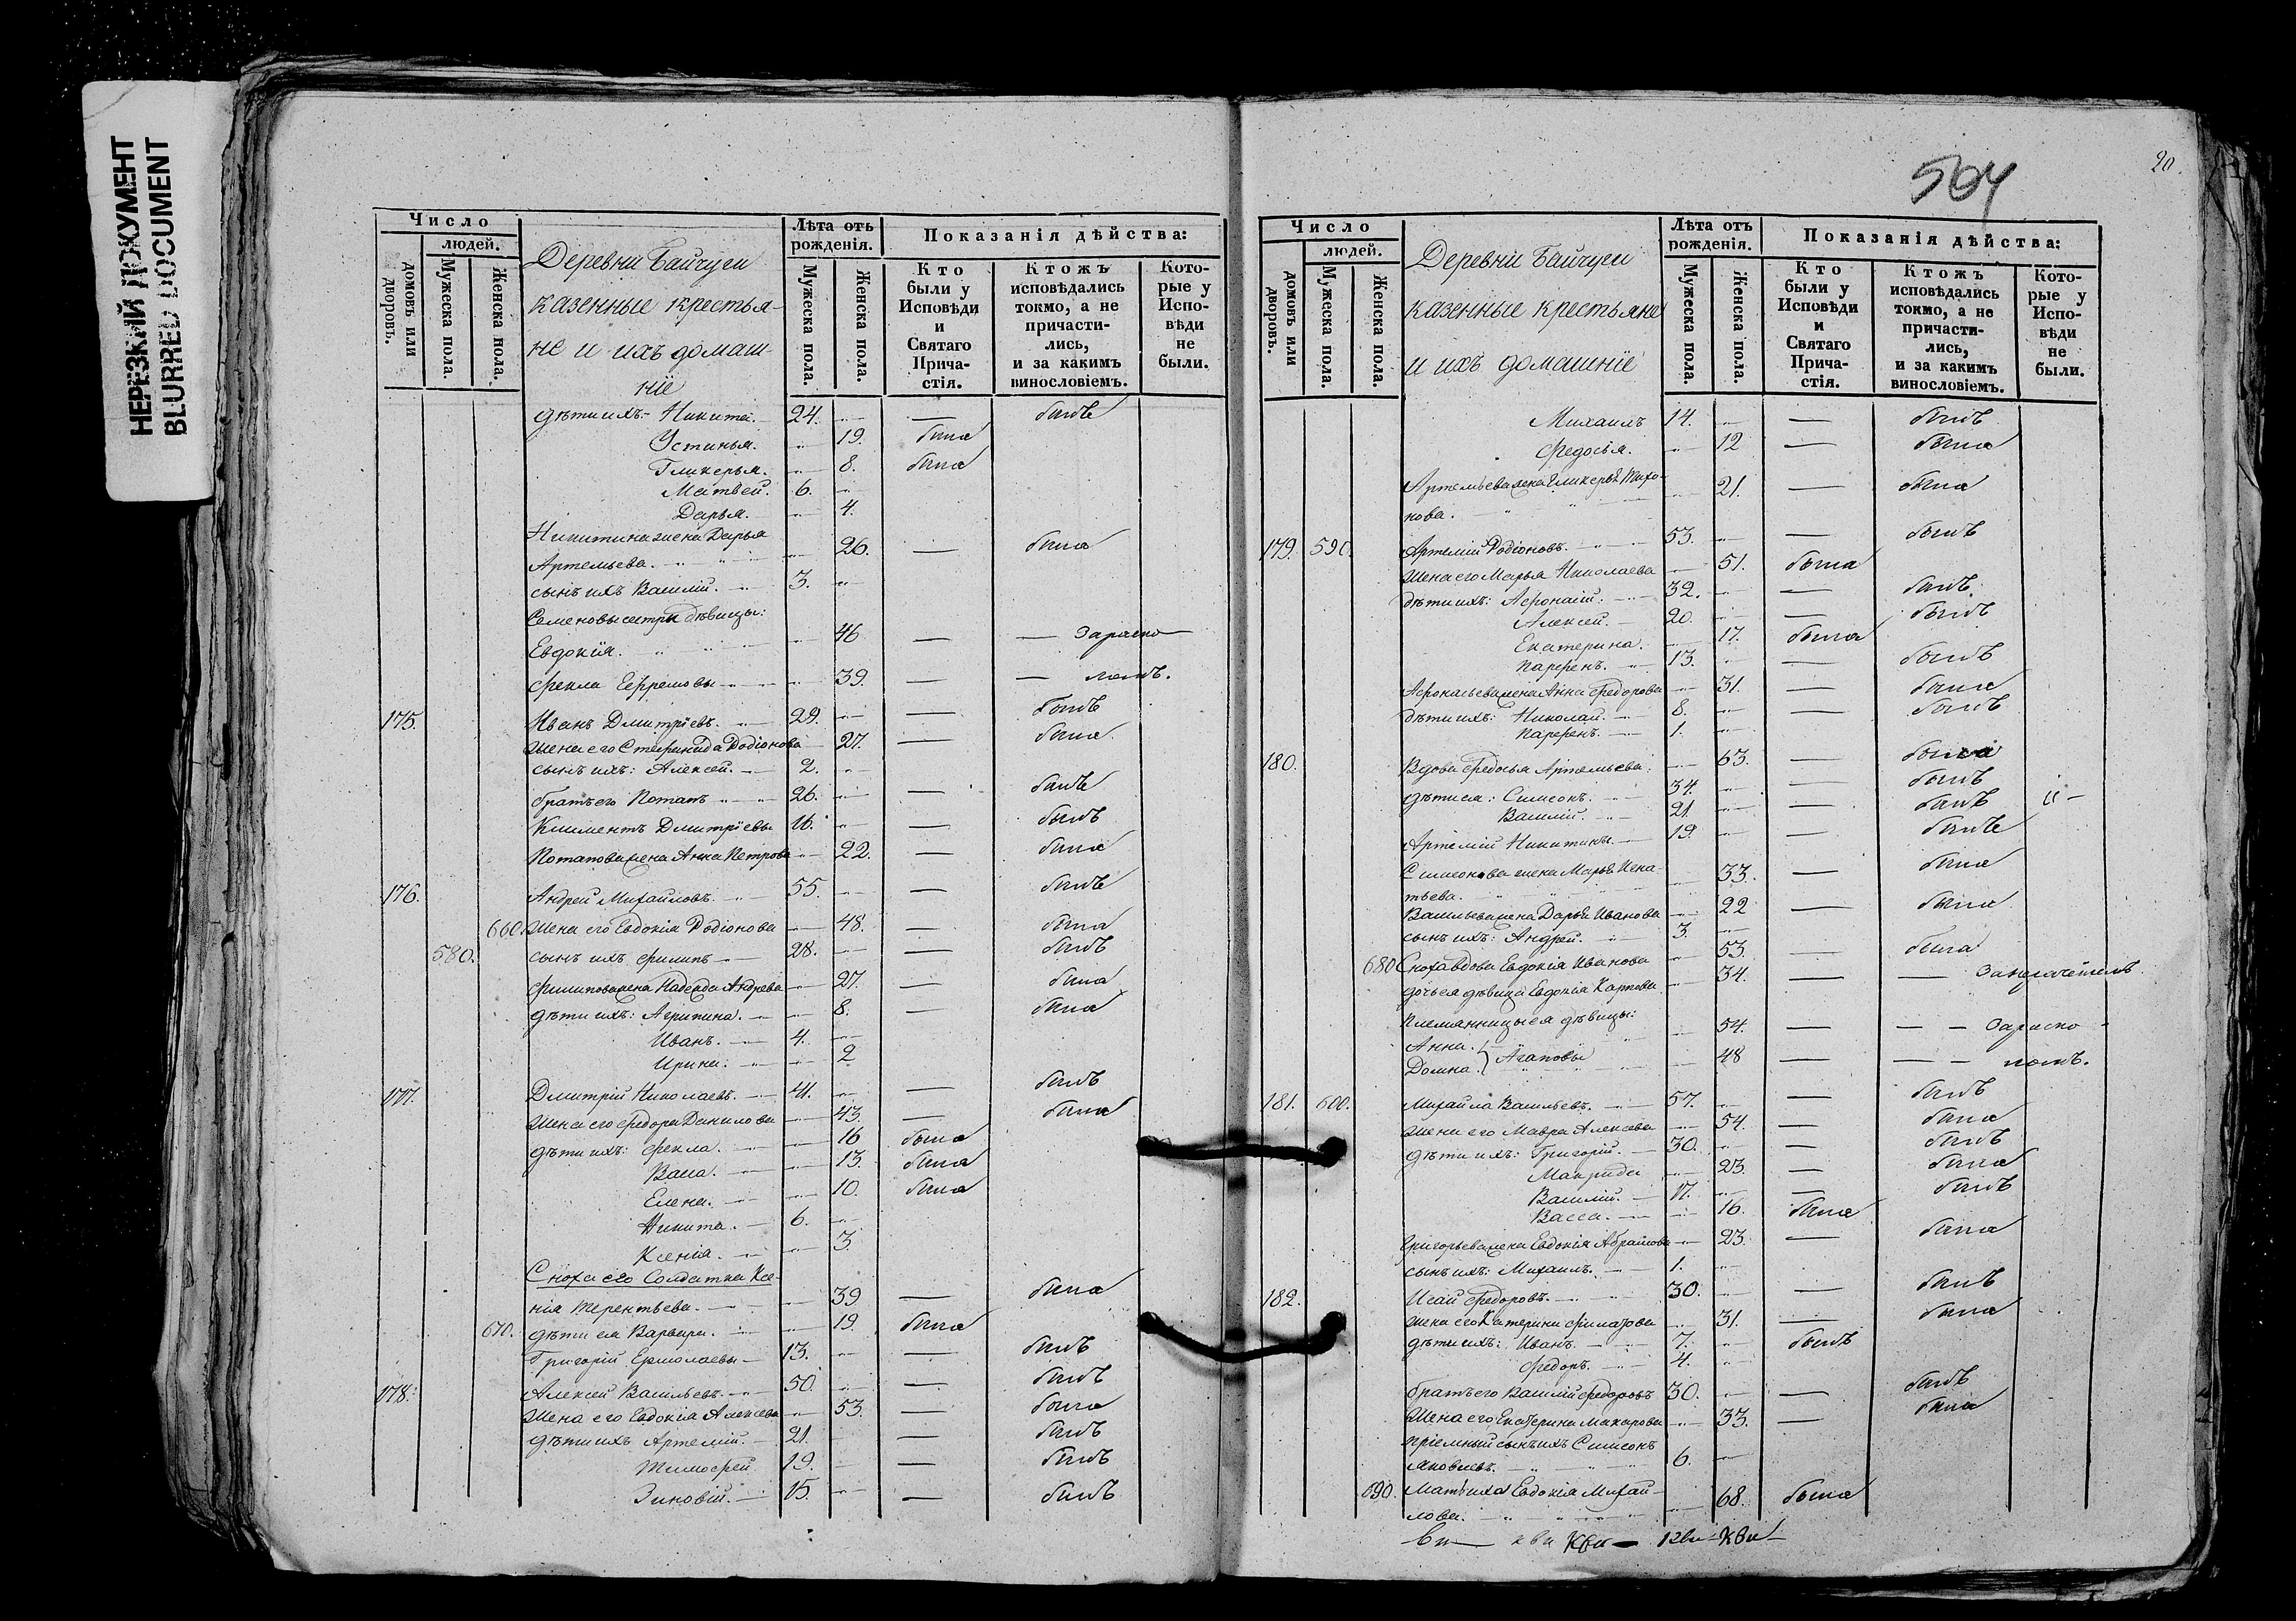 НЕРЕЗКИЙ ДОКУМЕНТ
BLURRED DOCUMENT
Число
людей.
домовъ или дворовъ.
Мужеска пола.
Женска пола.
Деревни Байчуги
казенные крестья-
не и ихъ домаш-
ніе
Лѣта отъ рожденія.
Мужеска пола.
Женска пола.
Показанія дѣйства:
Кто были у Исповѣди и Святаго Прича-стія.
Ктожъ исповѣдались токмо, а не причасти-лись, и за какимъ винословіемъ.
Кото-рые у Испо-вѣди не были.
дѣти ихъ: Никита. 24. — былъ
Устинья. 19. была
Гликерья. 8. была
Матвей. 6.
Дарья. 4.
Никитина жена Дарья
Артемьева. 26. — была
сынъ ихъ Василій. 3.
Семеновы сестры дѣвицы:
Евдокія. 46 — — Зараско
Фекла Ефремовы 39. — — ломъ.
175. Иванъ Дмитріевъ. 29. — былъ
жена его Степанида Родіонова 27. — была
сынъ ихъ: Алексей. 2.
братъ его Потапъ 26. — былъ
Климентъ Дмитріевы 16. — былъ
Потапова жена Анна Петрова 22. — была
176. Андрей Михайловъ. 55. — былъ
660. жена его Евдокія Родіонова 48. — была
580. сынъ ихъ Филипъ 28. — былъ
Филипова жена Надежда Андреева 27. — была
дѣти ихъ: Агрипина. 8. — была
Иванъ. 4.
Ирина. 2
177. Дмитрій Николаевъ. 41. — былъ
жена его Федора Данилова 43. — была
дѣти ихъ: Фекла. 16 была
Васа. 13. была
Елена. 10. была
Никита. 6.
Ксенія. 3.
Сноха его Солдатка Ксе-
нія Терентьева. 39 — была
670. дѣти ея Варвара. 19. была
Григорій Ермолаевы 13. — былъ
178. Алексей Васильевъ. 50. — былъ
жена его Евдокія Алексеева 53. — была
дѣти ихъ Артемій. 21. — былъ
Тимофей 19. — былъ
Зиновій. 15. — былъ
504
20.
Число
людей.
домовъ или дворовъ.
Мужеска пола.
Женска пола.
Деревни Байчуги
казенные крестьяне
и ихъ домашніе
Лѣта отъ рожденія.
Мужеска пола.
Женска пола.
Показанія дѣйства:
Кто были у Исповѣди и Святаго Прича-стія.
Ктожъ исповѣдались токмо, а не причасти-лись, и за какимъ винословіемъ.
Кото-рые у Испо-вѣди не были.
Михаилъ 14. — былъ
Федосія. 12 — была
Артемьева жена Гликерья Тихо-
нова. 21. — была
179. 590. Артемій Родіоновъ. 53. — былъ
жена его Марья Николаева 51. была
дѣти ихъ: Афонасій. 32. — былъ
Алексей. 20. — былъ
Екатерина. 17. была
Парфенъ. 13. — былъ
Афонасьева жена Анна Федорова 31. — была
дѣти ихъ: Николай. 8. — былъ
Парфенъ. 1.
180. Вдова Федосья Артемьева. 63. — была
дѣти ея: Симеонъ. 34. — былъ
Василій. 21. — былъ
Артемій Никитины. 19. — былъ
Симеонова жена Марья Игна-
тьева. 33. — была
Васильева жена Дарья Иванова 22 — была
сынъ ихъ: Андрей. 3.
680 Сноха вдова Евдокія Иванова 53. — была
дочь ея дѣвица Евдокія Карпова 34. — —
Племянницы ея дѣвицы:
Анна. 54. — — Зараско
Домна. } Агаповы 48 — — ломъ.
181. 600. Михайла Васильевъ. 57. — былъ
жена его Мавра Алексеева 54. — была
дѣти ихъ: Григорій. 30. — былъ
Макрида 23. — была
Василій. 17. — былъ
Васса. 16. была
Григорьева жена Евдокія Абрамова 23. — была
сынъ ихъ: Михаилъ. 1.
182. Исай Федоровъ. 30. — былъ
жена его Катерина Филатова 31. — была
дѣти ихъ: Иванъ. 7. былъ
Федоръ. 4.
братъ его Василій Федоровъ 30. — былъ
жена его Екатерина Макарова 33. — была
пріемный сынъ ихъ Симеонъ
Яковлевъ. 6.
690. Мать ихъ Евдокія Михай-
лова. 68. была